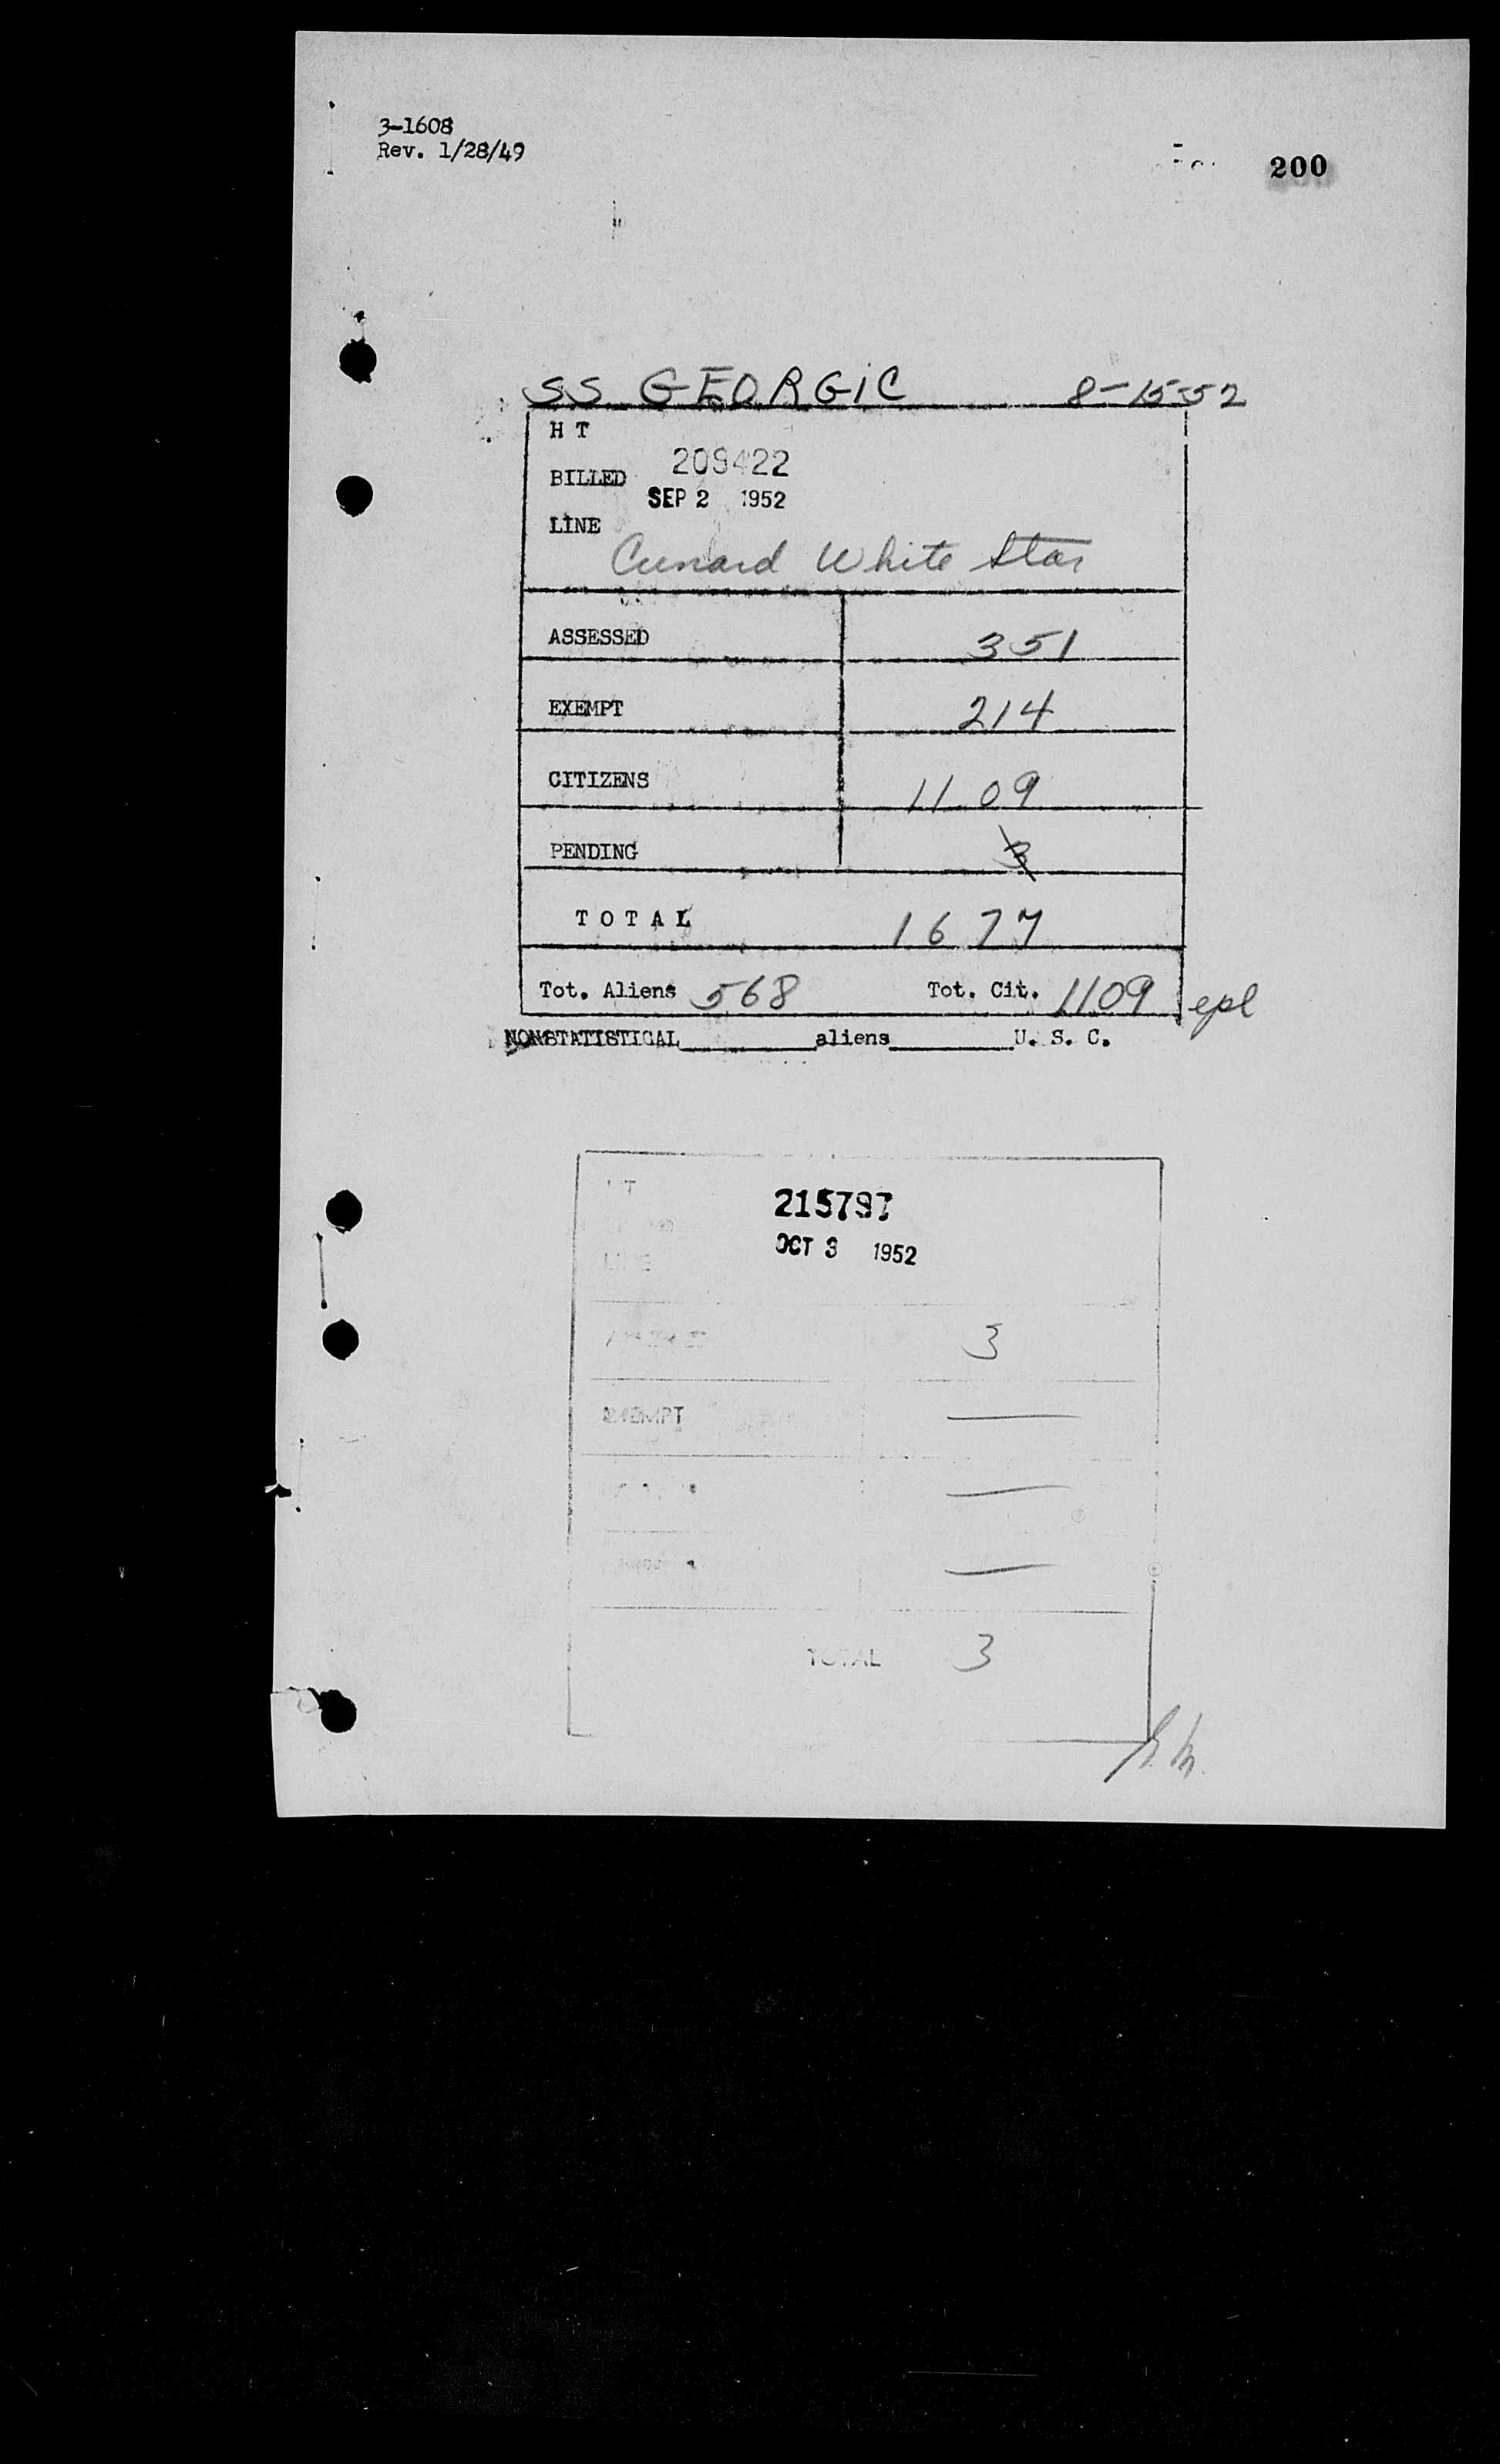 3-1608
Rev. 1/28/49
200
SS GEORGIC 8-15-52
H T
BILLED 209422
SEP 2 1952
LINE
Cunard White Star
ASSESSED 351
EXEMPT 214
CITIZENS 1109
PENDING 3
TOTAL 1677
Tot. Aliens 568 Tot. Cit. 1109 epl
NONSTATISTICAL aliens U. S. C.
215797
OCT 3 1952
LINE
3
EXEMPT
TOTAL 3